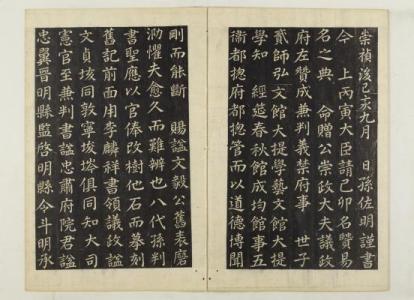 崇禎後己亥九月　日孫佐明謹書
今　上丙寅大臣請己卯名贊易
名之典　命贈公崇政大夫議政
府左贊成兼判義禁府事　世子
貳師弘文館大提學藝文館大提
學知　經筵春秋館成均館事五
衛都摠府都摠管而以道德博聞
剛而能斷　賜諡文毅公舊表磨
泐懼夫愈久而難辨也八代孫判
書聖應以官俸改樹他石而摹刻
舊記前面用李麟祥書領議政諡
文貞垓同敦寧埈塔俱同知大司
憲官至兼判書諡忠肅府院君諡
忠翼晋明縣監啓明縣令斗明承